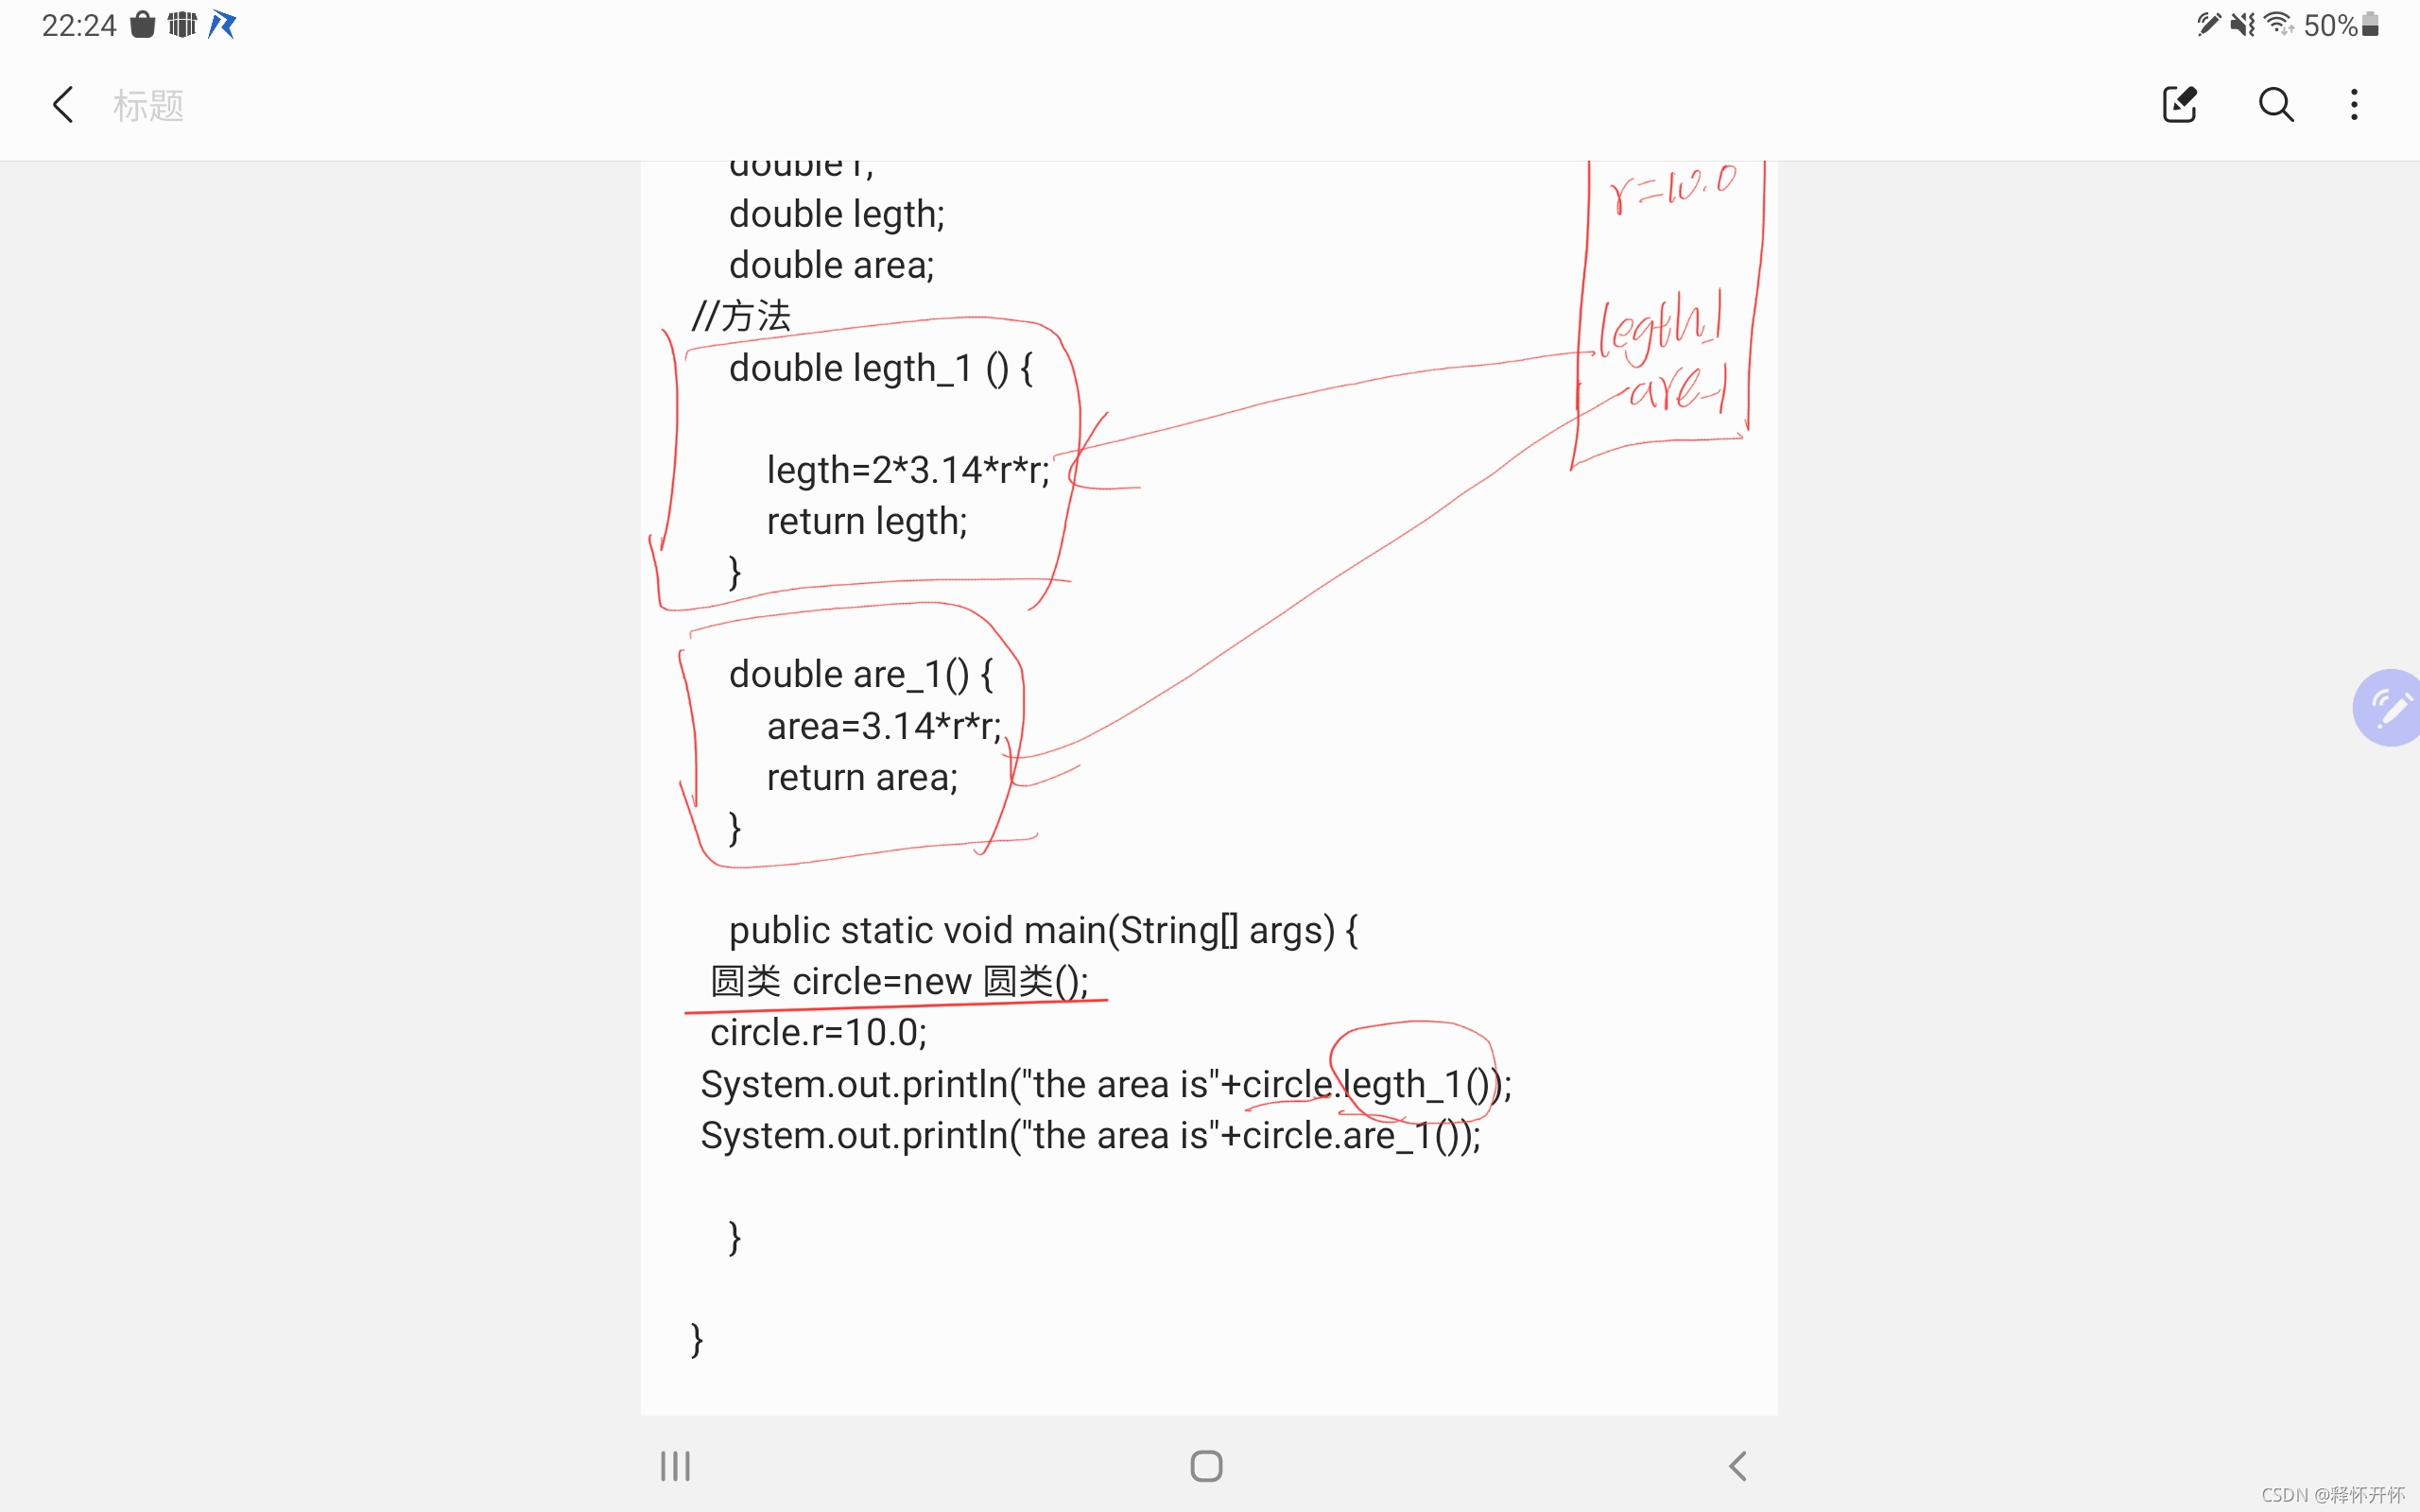 22:24
50%
标题
double r;
r=10.0
double legth;
double area;
//方法
legth_1
double legth_1 () {
are_1
legth=2*3.14*r*r;
return legth;
}
double are_1() {
area=3.14*r*r;
return area;
}
public static void main(String[] args) {
圆类 circle=new 圆类();
circle.r=10.0;
System.out.println("the area is"+circle.legth_1());
System.out.println("the area is"+circle.are_1());
}
}
CSDN @释怀开怀